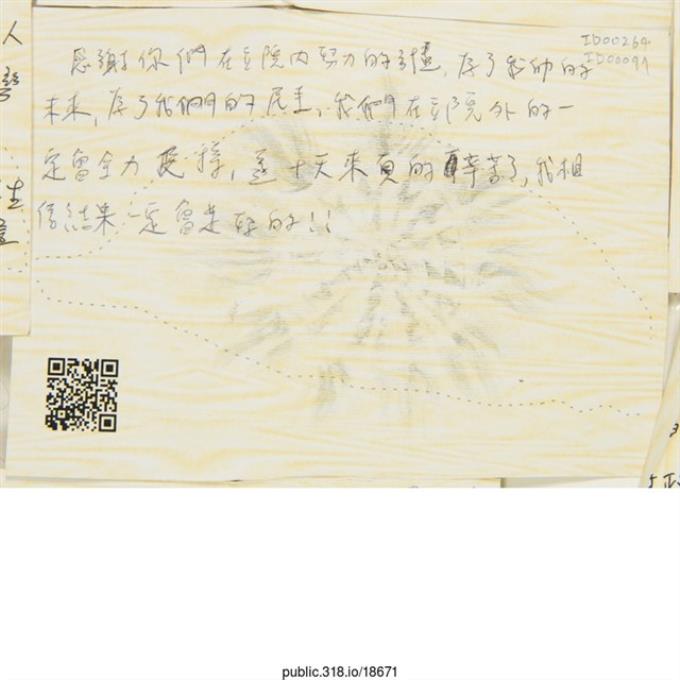 ID00264
ID00091
感謝你們在立院內努力的捍衛,為了我們的
未來,為了我們的民主,我們在立院外的一
定會全力支撐,這十天來真的辛苦了,我相
信結果一定會是好的!!
人
生
public.318.io/18671